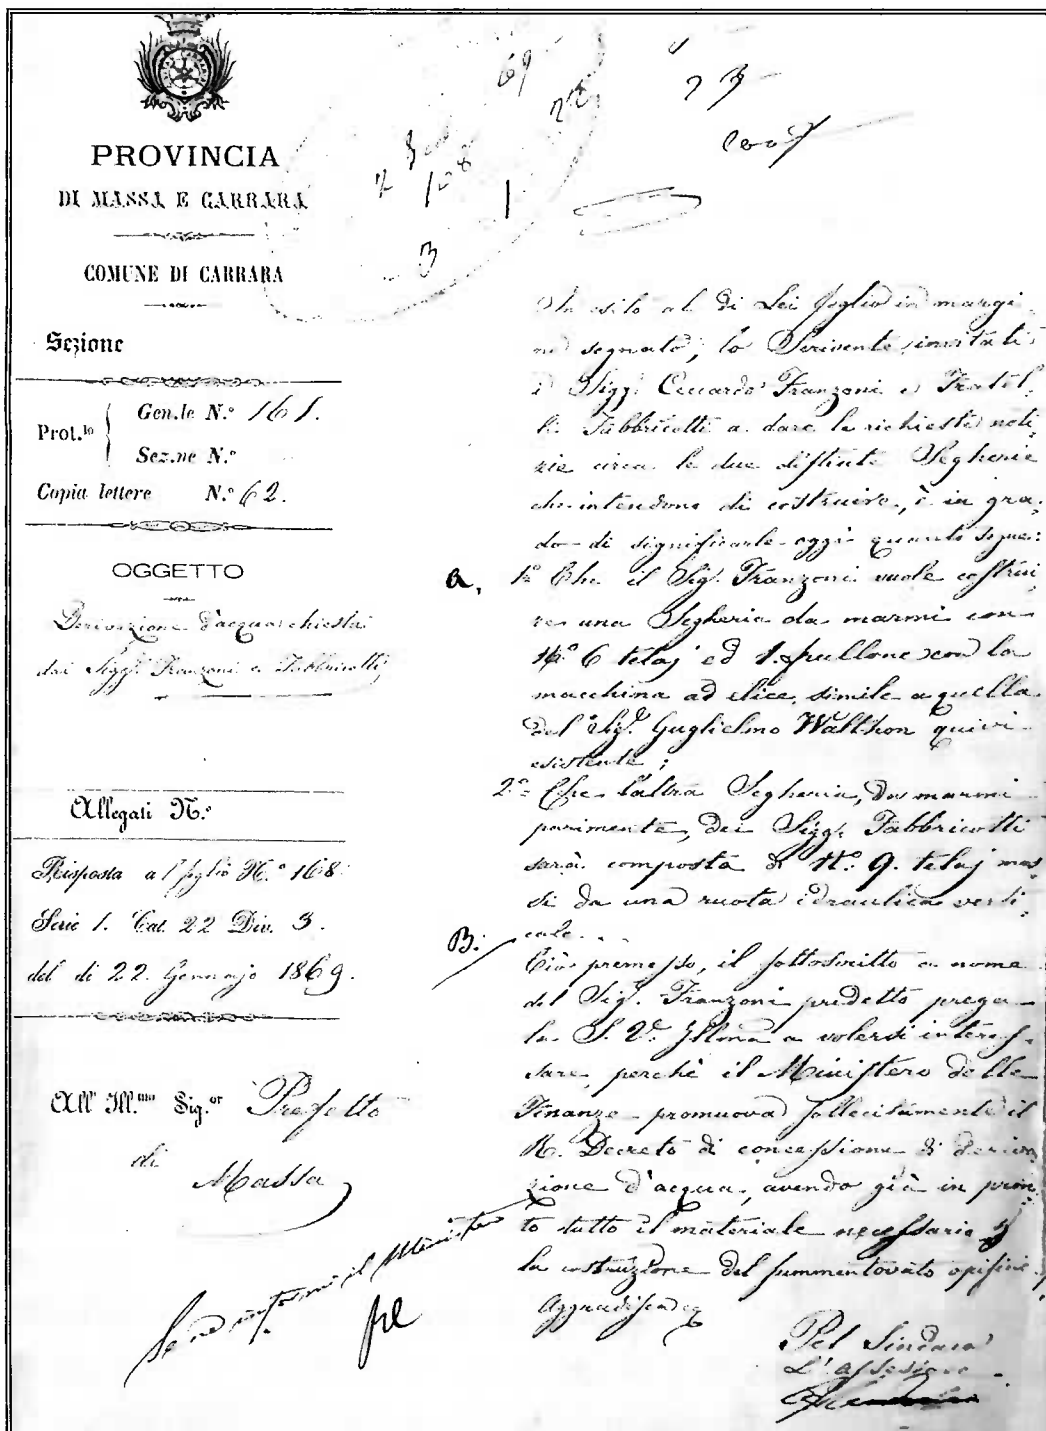 PROVINCIA
DI MASSA E CARRARA
COMUNE DI CARRARA
Sezione
Prot.lo
Gen.le N.º 161.
Sez.ne N.º
Copia lettere N.º 62.
OGGETTO
Derivazione d'acqua chiesta
dai Sigg.i Franzoni e Fabbricotti
Allegati N.º
Risposta al foglio N.º 168
Serie 1. Cat. 22 Div. 3.
del di 22. Gennajo 1869.
All' Ill.mo Sig.or Prefetto
di
Massa
69
3
1
In esito al di Lei foglio in margi
ne segnato, lo Scrivente, invitati
i Sigg.i Ceccardo Franzoni e Fratel,
li Fabbricotti a dare le richieste noti,
zie circa le due distinte Segherie
che intendono di costruire, è in gra,
do di significarle oggi quanto segue:
a. 1º Che il Sig.r Franzoni vuole costrui
re una Segheria da marmi con
Nº 6 telaj ed 1. frullone con la
macchina ad elice, simile a quella
del Sig.r Guglielmo Walthon quivi
esistente;
2.º Che l'altra Segheria, da marmi
parimente, dei Sigg.i Fabbricotti
sarà composta di Nº. 9. telaj mos
si da una ruota idraulica verti,
cale.
B. Ciò premesso, il sottoscritto a nome
del Sig.r Franzoni predetto prega
la S. V. Illma a volersi interes,
sare, perchè il Ministero delle
Finanze promuova sollecitamente il
R. Decreto di concessione di deriva
zione d'acqua, avendo già in pron,
to tutto il materiale necessario p
la costruzione del summentovato opificio,
Aggradisca
Se ne informi il Ministero
Pel Sindaco
L'assessore